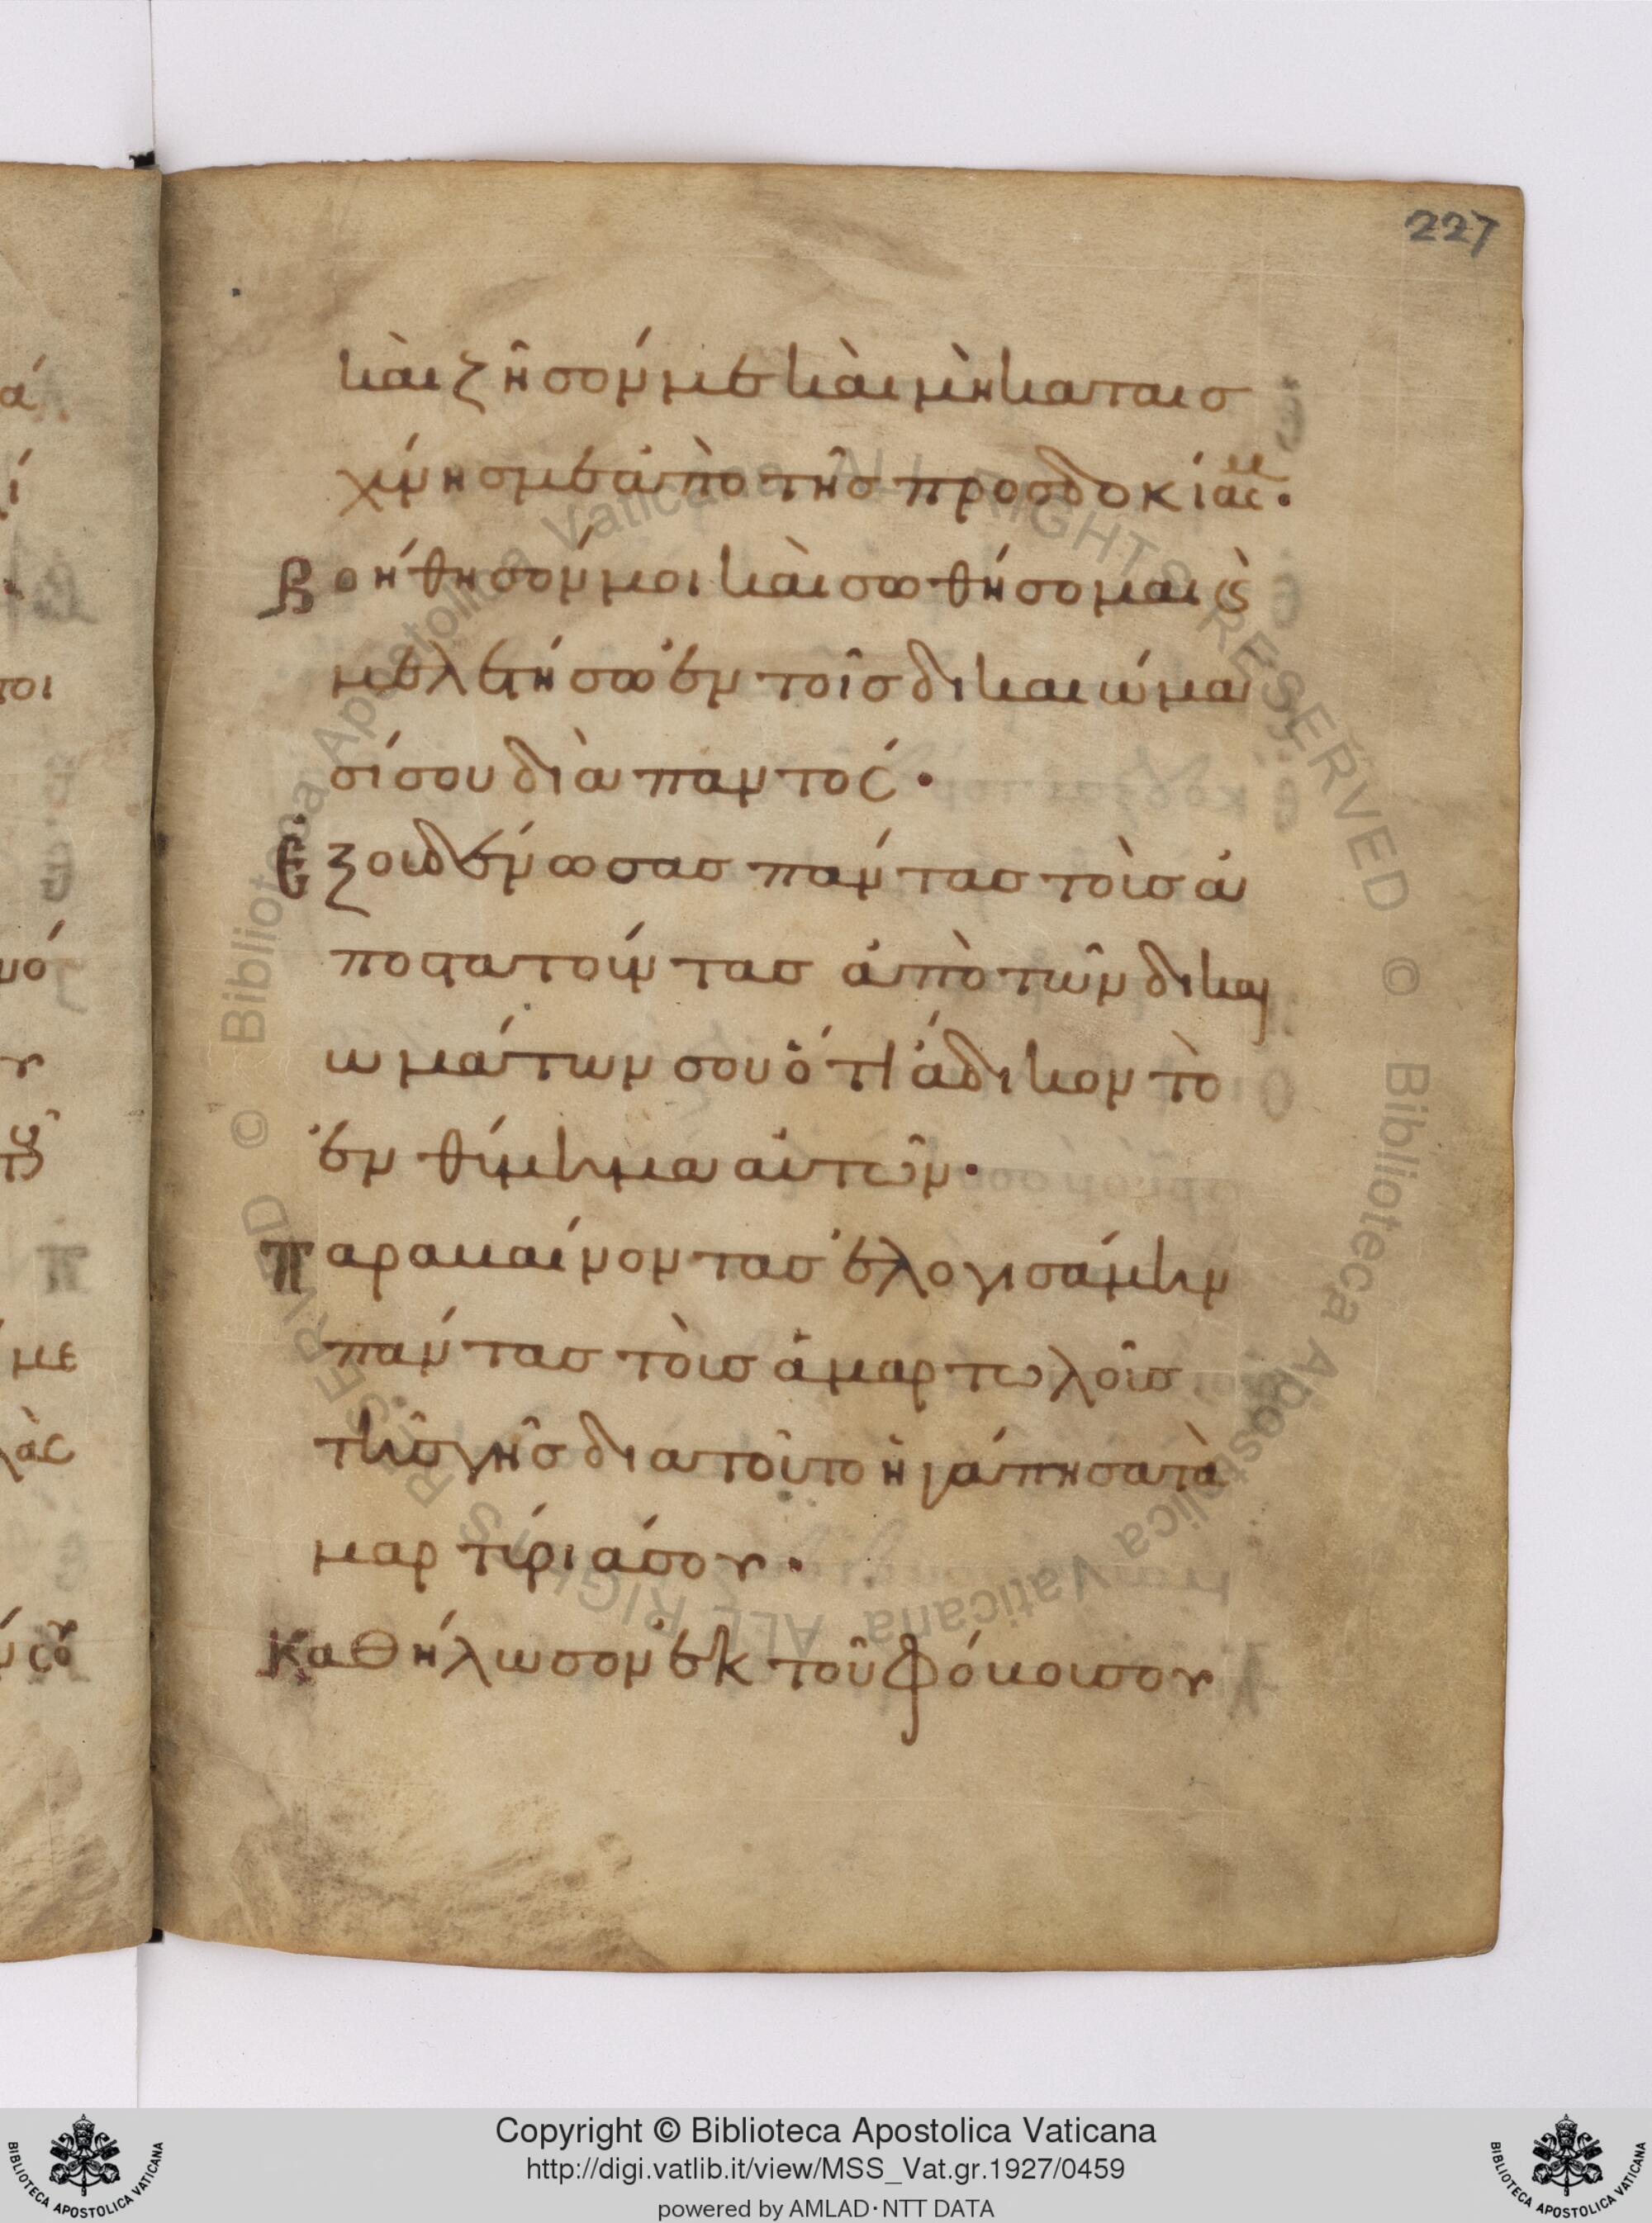 227
καὶ ζῆσόν με καὶ μὴ καταισ
χύνησ με ἀπὸ τῆσ προσδοκίασ μ·
Βοήθησόν μοι καὶ σωθήσομαι ϗ
μελετήσω ἐν τοῖσ δικαιώμα
σί σου διὰ παντός·
Ἐξουδένωσασ πάντασ τοὺσ ἀ
ποστατοῦντασ ἀπὸ τῶν δικαι
ωμάτων σου ὅτι ἄδικον τὸ
ἐνθύμημα αὐτῶν·
Παραβαίνοντασ ἐλογισάμην
πάντασ τοὺσ ἁμαρτωλοῦσ
τῆσ γῆσ δια τοῦτο ἠγάπησα τὰ
μαρτύριά σου·
Καθήλωσον ἐκ τοῦ φόβου σου
Copyright © Biblioteca Apostolica Vaticana
http://digi.vatlib.it/view/MSS_Vat.gr.1927/0459
powered by AMLAD·NTT DATA
BIBLIOTECA APOSTOLICA VATICANA
BIBLIOTECA APOSTOLICA VATICANA